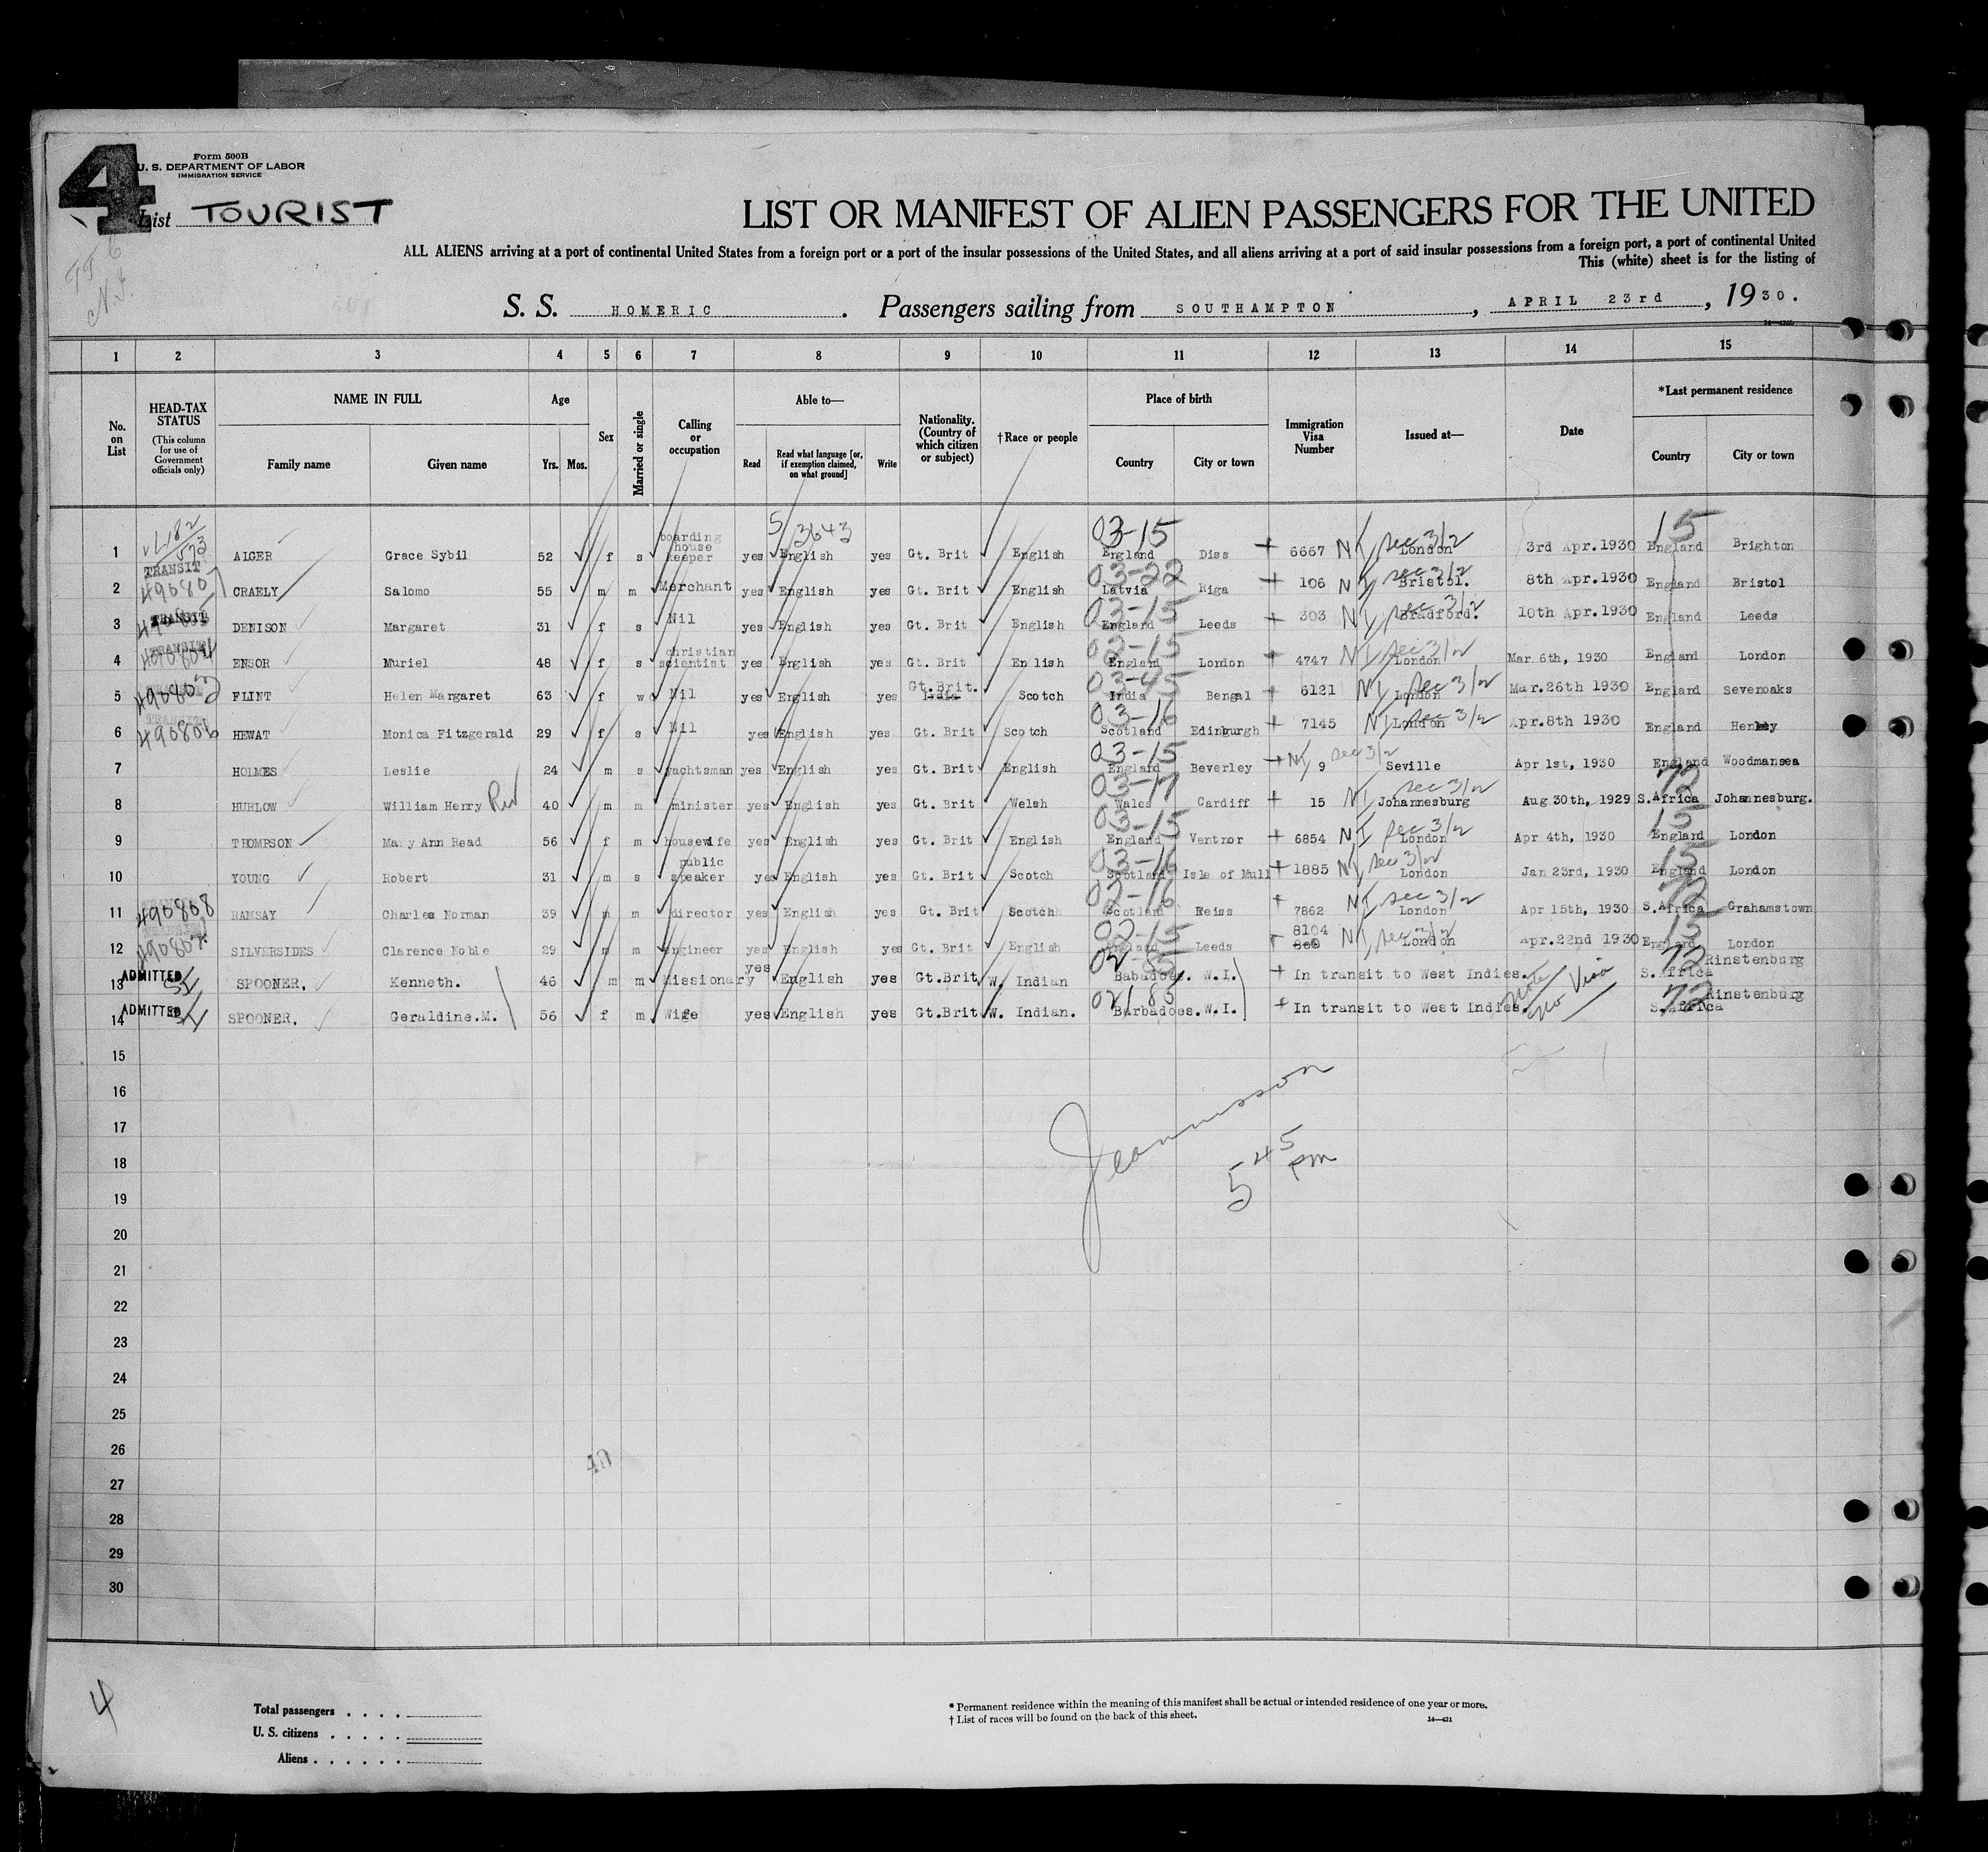 4
Form 500B
U. S. DEPARTMENT OF LABOR
IMMIGRATION SERVICE
List TOURIST
LIST OR MANIFEST OF ALIEN PASSENGERS FOR THE UNITED
ALL ALIENS arriving at a port of continental United States from a foreign port or a port of the insular possessions of the United States, and all aliens arriving at a port of said insular possessions from a foreign port, a port of continental United
This (white) sheet is for the listing of
S. S. HOMERIC. Passengers sailing from SOUTHAMPTON, APRIL 23rd, 1930.
1 2 3 4 5 6 7 8 9 10 11 12 13 14 15
No. on List
HEAD-TAX STATUS (This column for use of Government officials only)
NAME IN FULL
Family name Given name
Age
Yrs. Mos.
Sex
Married or single
Calling or occupation
Able to—
Read Read what language [or, if exemption claimed, on what ground] Write
Nationality. (Country of which citizen or subject)
†Race or people
Place of birth
Country City or town
Immigration Visa Number
Issued at—
Date
*Last permanent residence
Country City or town
5/3643 03-15 15
1 ALGER Grace Sybil 52 f s boarding house keeper yes English yes Gt. Brit English England Diss 6667 NI sec 3/2 London 3rd Apr.1930 England Brighton
TRANSIT
03-22
2 CRAELY Salomo 55 m m Merchant yes English yes Gt. Brit English Latvia Riga 106 NI sec 3/2 Bristol. 8th Apr.1930 England Bristol
TRANSIT
03-15
3 DENISON Margaret 31 f s Nil yes English yes Gt. Brit English England Leeds 303 NI sec 3/2 Bradford. 10th Apr.1930 England Leeds
TRANSIT
02-15
4 490804 ENSOR Muriel 48 f s christian scientist yes English yes Gt. Brit En lish England London 4747 NI sec 3/2 London Mar 6th, 1930 England London
03-45
5 490803 FLINT Helen Margaret 63 f wd Nil yes English yes Gt.Brit. India Scotch India Bengal 6121 NI sec 3/2 London Mar.26th 1930 England Sevenoaks
TRANSIT
03-16
6 490806 HEWAT Monica Fitzgerald 29 f s Nil yes English yes Gt. Brit Scotch Scotland Edinburgh 7145 NI sec 3/2 London Apr.8th 1930 England Henley
03-15
7 HOLMES Leslie 24 m s yachtsman yes English yes Gt. Brit English England Beverley NI 9 sec 3/2 Seville Apr 1st, 1930 England Woodmansea
03-17 72
8 HURLOW William Henry Rev 40 m m minister yes English yes Gt. Brit Welsh Wales Cardiff 15 NI sec 3/2 Johannesburg Aug 30th, 1929 S.Africa Johannesburg.
03-15 15
9 THOMPSON Mary Ann Read 56 f m housewife yes English yes Gt. Brit English England Ventnor 6854 NI sec 3/2 London Apr 4th, 1930 England London
03-16 15
10 YOUNG Robert 31 m s public speaker yes English yes Gt. Brit Scotch Scotland Isle of Mull 1885 NI sec 3/2 London Jan 23rd, 1930 England London
02-16 72
11 490808 RAMSAY Charles Norman 39 m m director yes English yes Gt. Brit Scotch Scotland Reiss 7862 NI sec 3/2 London Apr 15th, 1930 S.Africa Grahamstown
02-15 15
12 490807 SILVERSIDES Clarence Noble 29 m m engineer yes English yes Gt. Brit English England Leeds 8104 NI sec 3/2 London Apr.22nd 1930 England London
02 85 72
13 ADMITTED SPOONER, Kenneth. 46 m m Missionary yes English yes Gt.Brit W. Indian Babadoes. W.I. In transit to West Indies. S. Africa Rinstenburg
02/85 72
14 ADMITTED SPOONER, Geraldine.M. 56 f m Wife yes English yes Gt.Brit W. Indian. Barbadoes.W.I. In transit to West Indies. No Visa S.Africa Rinstenburg
15
16
17
18
19
20
21
22
23
24
25
26
27
28
29
30
5 45 pm
4
Total passengers . . . .
U. S. citizens . . . . .
Aliens . . . . . .
* Permanent residence within the meaning of this manifest shall be actual or intended residence of one year or more.
† List of races will be found on the back of this sheet.
14—431